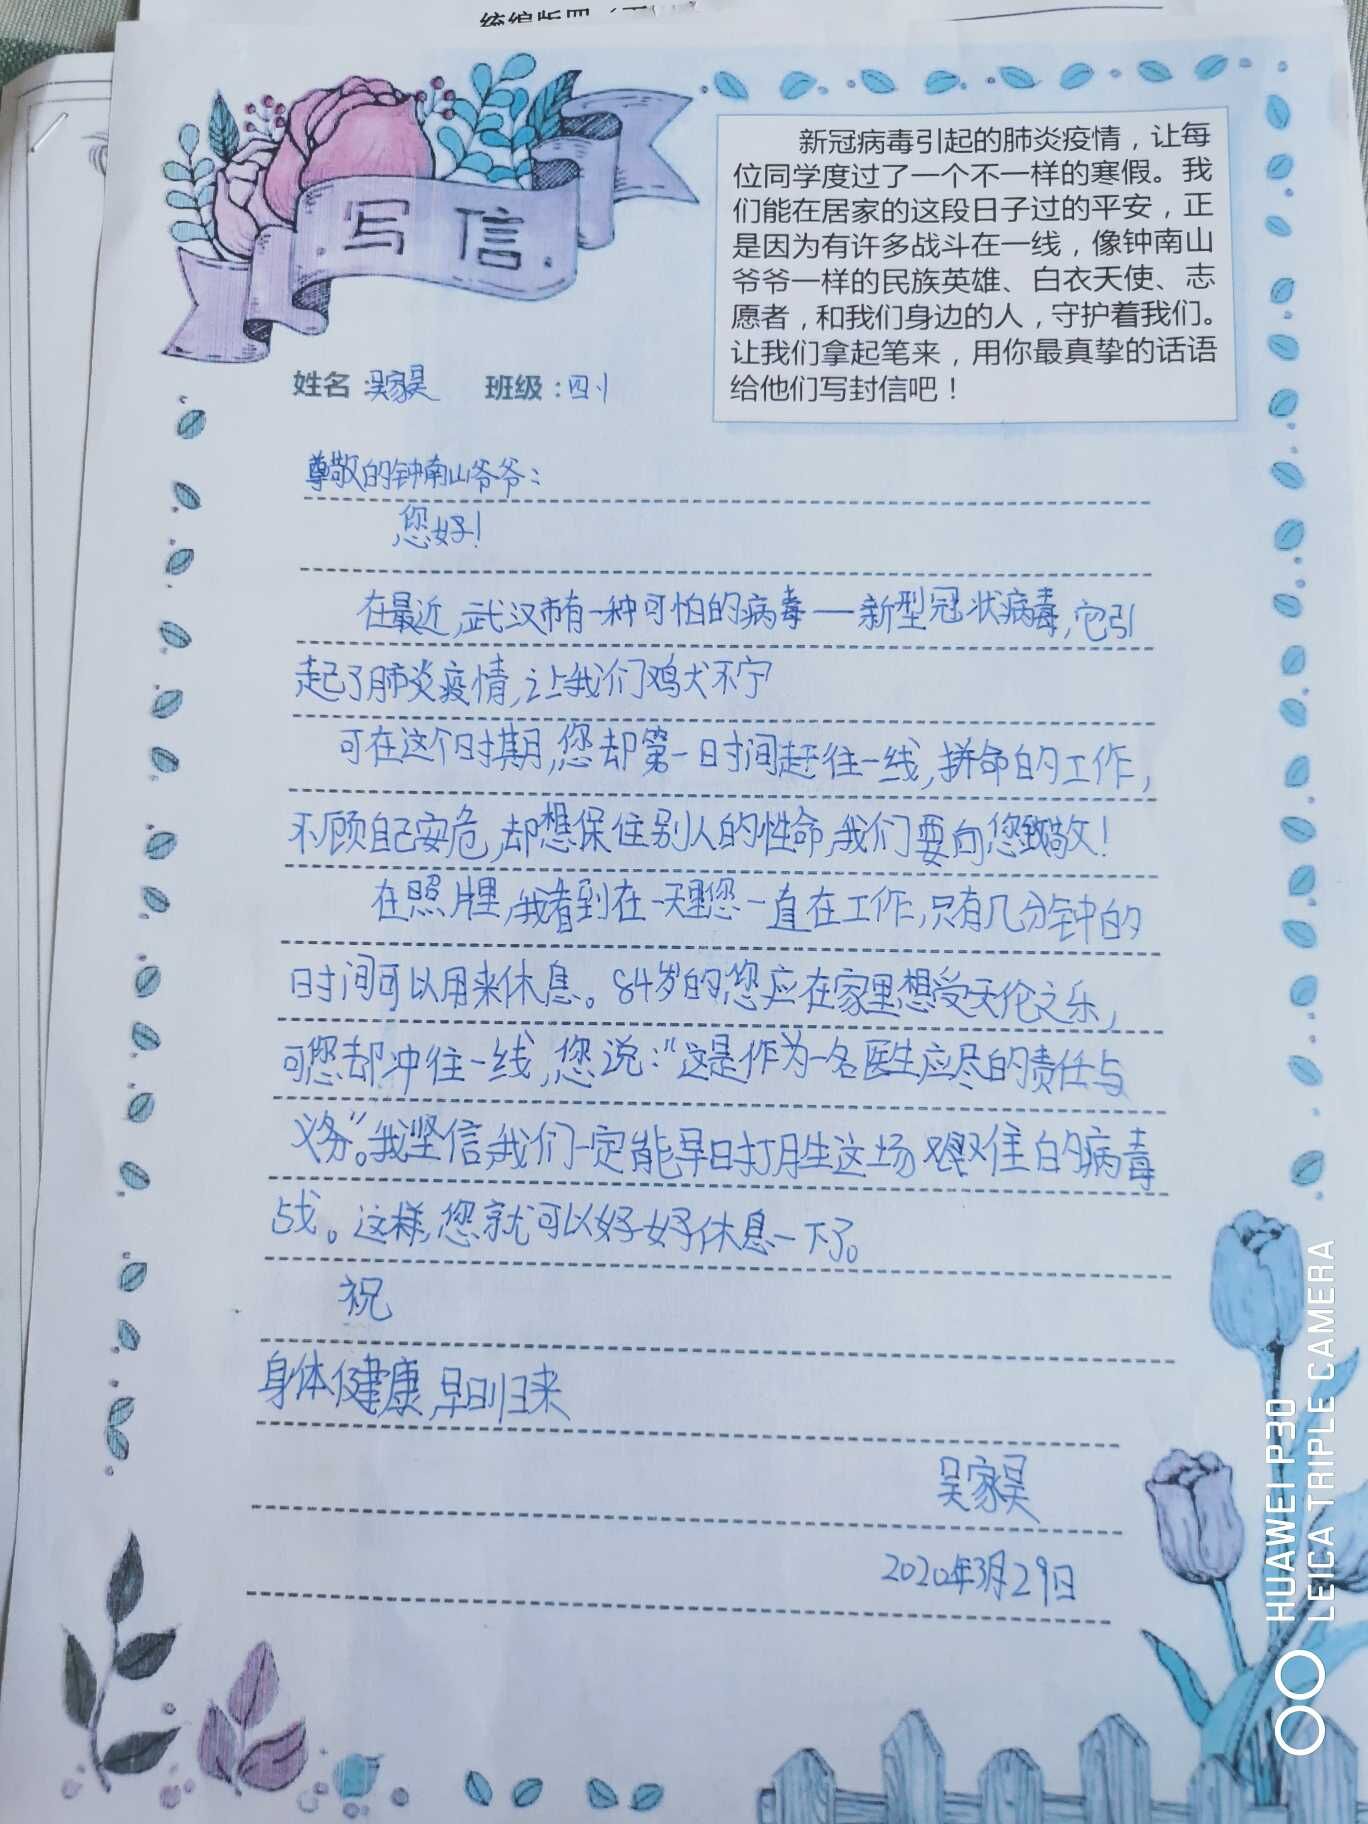 写信
新冠病毒引起的肺炎疫情，让每
位同学度过了一个不一样的寒假。我
们能在居家的这段日子过的平安，正
是因为有许多战斗在一线，像钟南山
爷爷一样的民族英雄、白衣天使、志
愿者，和我们身边的人，守护着我们。
让我们拿起笔来，用你最真挚的话语
给他们写封信吧！
姓名：吴家昊 班级：四1
尊敬的钟南山爷爷：
您好！
在最近，武汉市有一种可怕的病毒——新型冠状病毒，它引
起了肺炎疫情，让我们鸡犬不宁
可在这个时期，您却第一时间赶往一线，拼命的工作，
不顾自己安危，却想保住别人的性命，我们要向您致敬！
在照片里，我看到在一天里您一直在工作，只有几分钟的
时间可以用来休息。84岁的您应在家里想受天伦之乐，
可您却冲往一线，您说：“这是作为一名医生应尽的责任与
义务”。我坚信，我们一定能早日打胜这场艰难的病毒
战。这样，您就可以好好休息一下了。
祝
身体健康，早日归来
吴家昊
2020年3月29日
HUAWEI P30
LEICA TRIPLE CAMERA